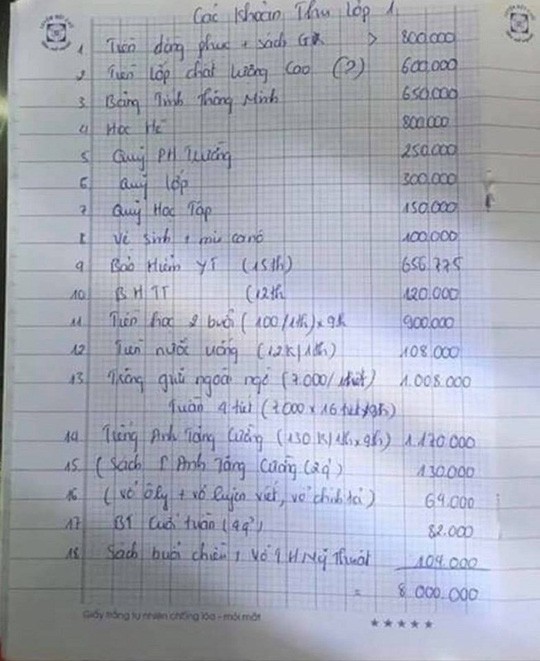 Các Khoản Thu lớp 1
1 Tiền đồng phục + sách GK > 800.000
2 Tiền lớp chất lượng cao (?) 600.000
3 Bảng Tính Thông Minh 650.000
4 Học Hè 800.000
5 Quỹ PH Trường 250.000
6 Quỹ lớp 300.000
7 Quỹ Học Tập 150.000
8 Vệ sinh + 100.000
9 Bảo Hiểm YT (15th) 656.775
10 BHTT (12th 120.000
11 Tiền học 2 buổi (100/1th) x 9th 900.000
12 Tiền nước uống (12K/1th) 108.000
13 Trông giữ ngoài (7.000/ 1.008.000
Tuần 4 tiết (7.000 x 16 tiết/9th)
14 Tiếng Anh Tăng Cường (130K/1th x 9th) 1.170.000
15 (Sách T Anh Tăng Cường (2q) 130.000
16 (Vở ôly + vở luyện viết, vở chính tả) 69.000
17 BT Cuối tuần (4q) 82.000
18 Sách buổi chiều, Vở Mỹ Thuật 104.000
= 8.000.000
Giấy trắng tự nhiên chống lóa - mỏi mắt
★★★★★